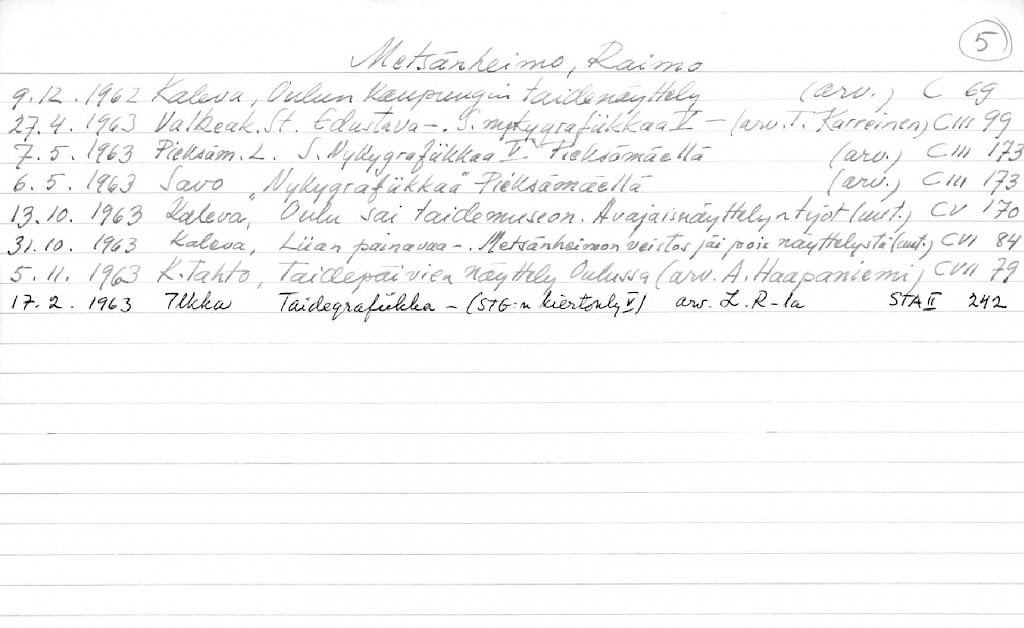 5
Metsänheimo, Raimo
9.12.1962 Kaleva, Oulun Kaupungin taidenäyttely (arv.) C 69
27.4.1963 Valkeak.St. Edustava-. S. nykygrafiikkaa V - (arv. T. Karreinen) CIII 99
7.5.1963 Pieksäm. L. S. Nykygrafiikkaa V. Pieksämäellä (arv.) CIII 173
6.5.1963 Savo "Nykygrafiikkaa" Pieksämäellä (arv.) CIII 173
13.10.1963 Kaleva, Oulu sai taidemuseon. Avajaisnäyttelyn työt (uut.) CV 170
31.10.1963 Kaleva, Liian painavaa-. Metsänheimon veistos jäi pois näyttelystä (uut.) CVI 84
5.11.1963 K.Tahto, Taidepäivien näyttely Oulussa (arv. A. Haapaniemi) CVII 79
17.2.1963 Ilkka Taidegrafiikka - (STG:n kiertonly V) arv. L.R-la STA II 242